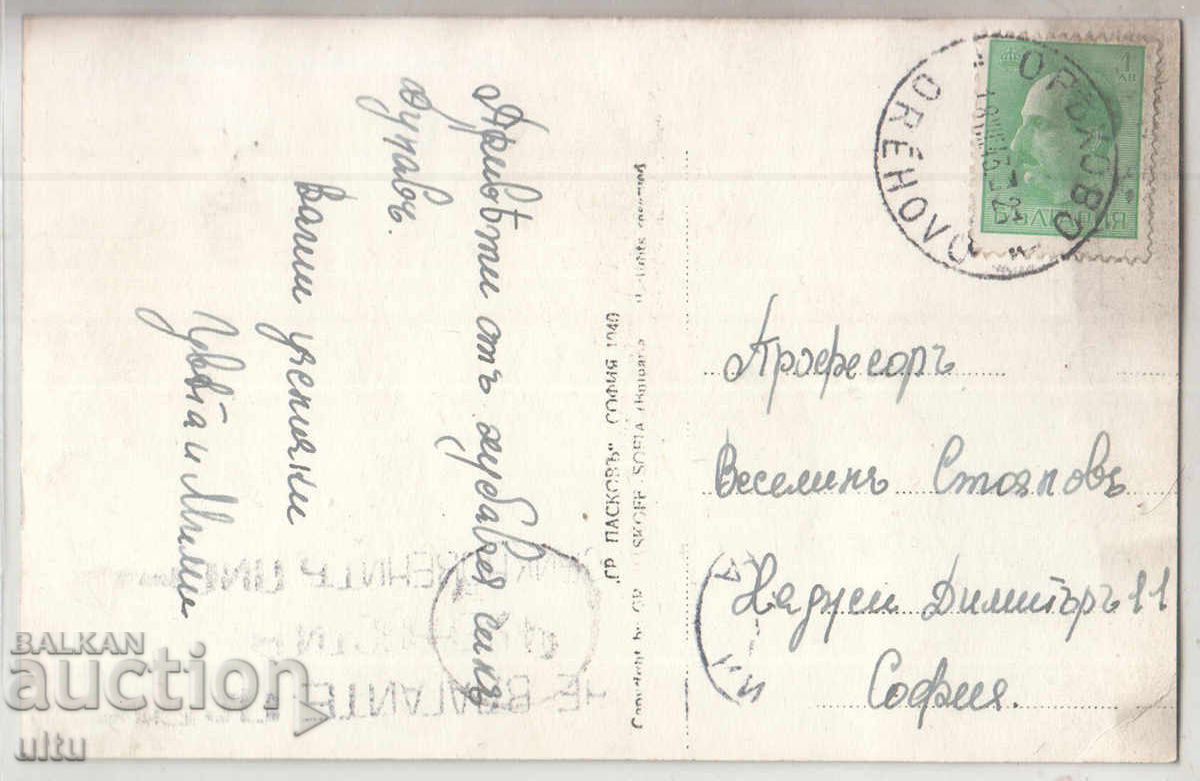 Привѣти отъ хубавия синъ
Дунавъ.
Ваши ученички
Цвѣта и Мими
"ГР ПАСКОВЪ" СОФИЯ 1940
Copyright by GR PASKOFF SOFIA
ОРѢХОВО
OREHOVO
1
ЛВ
БЪЛГАРИЯ
Професоръ
Веселинъ Стояновъ
Хаджи Димитъръ 11
София.
BALKAN
auction
ultu